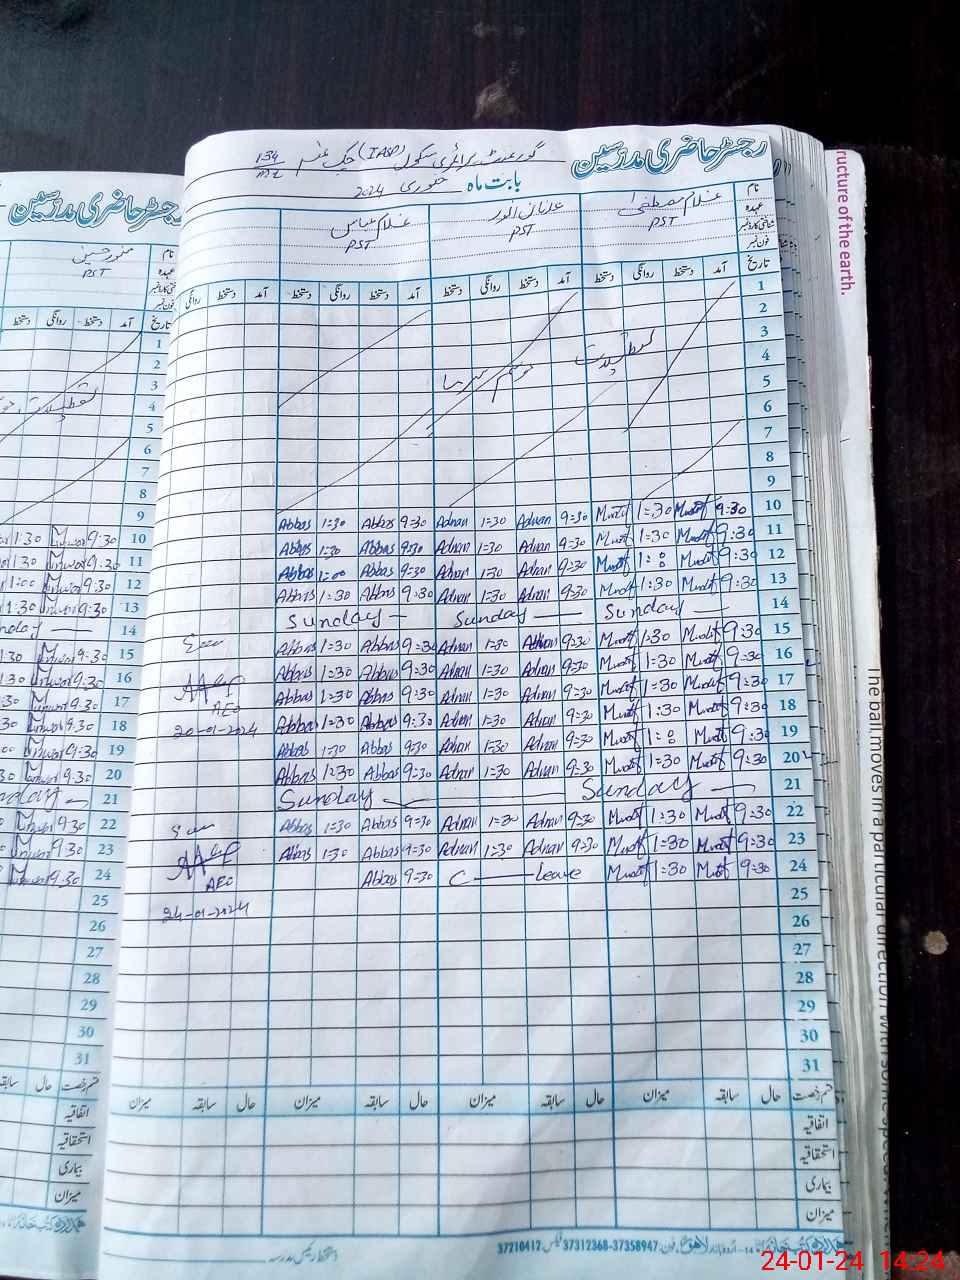 رجسٹر حاضری مدرسین
گورنمنٹ پرائمری سکول (IASP) چک نمبر 134
بابت ماہ جنوری 2024
نام غلام مصطفیٰ عدنان انور غلام عباس
عہدہ PST PST PST
شناختی کارڈ نمبر
فون نمبر
تاریخ آمد دستخط روانگی دستخط آمد دستخط روانگی دستخط آمد دستخط روانگی دستخط آمد دستخط روانگی
1
2
3 تعطیلات
4 موسم سرما
5
6
7
8
9
Abbas 1=30 Abbas 9=30 Adnan 1=30 Adnan 9=30 Mustf 1=30 Mustf 9=30 10
Abbas 1=30 Abbas 9=30 Adnan 1=30 Adnan 9=30 Mustf 1=30 Mustf 9=30 11
Abbas 1=00 Abbas 9=30 Adnan 1=30 Adnan 9=30 Mustf Mustf 9=30 12
Abbas 1=30 Abbas 9=30 Adnan 1=30 Adnan 9=30 Mustf 1=30 Mustf 9=30 13
Sunday Sunday Sunday 14
Abbas 1=30 Abbas 9=30 Adnan 1=30 Adnan 9=30 Mustf 1=30 Mustf 9=30 15
Abbas 1=30 Abbas 9=30 Adnan 1=30 Adnan 9=30 Mustf 1=30 Mustf 9=30 16
AEO Abbas 1=30 Abbas 9=30 Adnan 1=30 Adnan 9=30 Mustf 1=30 Mustf 9=30 17
20-01-2024 Abbas 1=30 Abbas 9=30 Adnan 1=30 Adnan 9=30 Mustf 1=30 Mustf 9=30 18
Abbas 1=30 Abbas 9=30 Adnan 1=30 Adnan 9=30 Mustf Mustf 9=30 19
Abbas 1=30 Abbas 9=30 Adnan 1=30 Adnan 9=30 Mustf 1=30 Mustf 9=30 20
Sunday Sunday 21
Abbas 1=30 Abbas 9=30 Adnan 1=30 Adnan 9=30 Mustf 1=30 Mustf 9=30 22
Abbas 1=30 Abbas 9=30 Adnan 1=30 Adnan 9=30 Mustf 1=30 Mustf 9=30 23
AEO Abbas 9=30 C Leave Mustf 1=30 Mustf 9=30 24
24-01-2024 25
26
27
28
29
30
31
قسم رخصت حال سابقہ میزان حال سابقہ میزان حال سابقہ میزان حال سابقہ میزان
اتفاقیہ
استحقاقیہ
بیماری
میزان
دستخط رئیس مدرسہ
37210417 37312368-37358947
رجسٹر حاضری مدرسین
نام منور حسین
عہدہ PST
فون نمبر
تاریخ آمد دستخط روانگی دستخط
1
2
3
4 تعطیلات
5
6
7
8
9
1:30 Munwar 9:30 10
1:30 Munwar 9:30 11
1:00 Munwar 9:30 12
1:30 Munwar 9:30 13
nday 14
1:30 Munwar 9:30 15
1:30 Munwar 9:30 16
:30 Munwar 9.30 17
:30 Munwar 9.30 18
00 Munwar 9:30 19
30 Munwar 9.30 20
nday 21
Munwar 9:30 22
Munwar 9:30 23
Munwar 9.30 24
25
26
27
28
29
30
31
قسم رخصت حال سابقہ
اتفاقیہ
استحقاقیہ
بیماری
میزان
ructure of the earth.
The ball moves in a particular direction with some speed. W
24-01-24 14:24